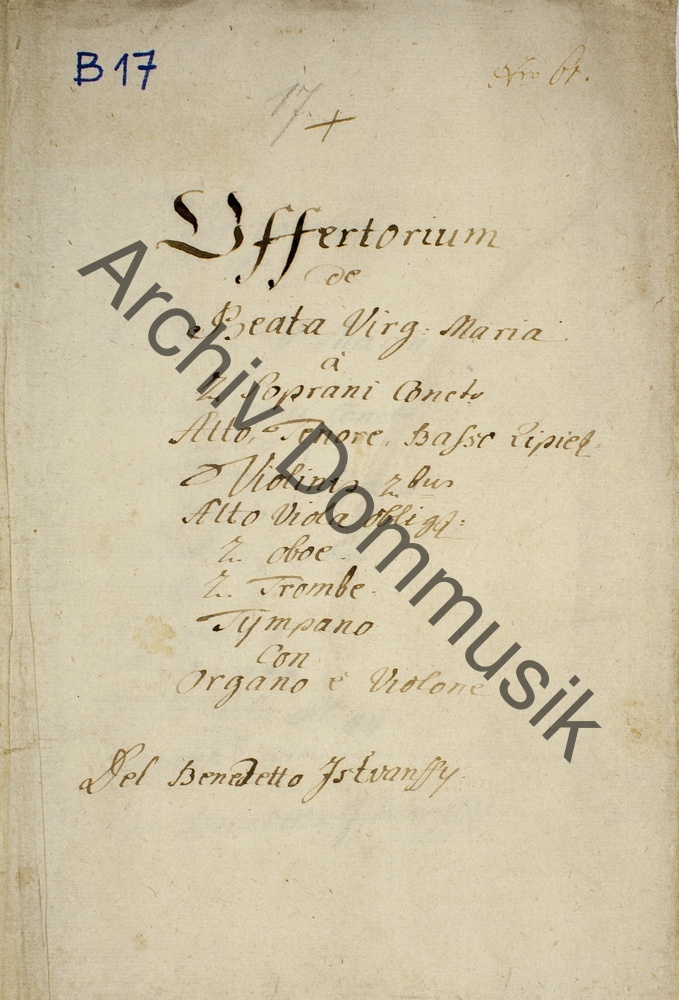 B 17
Nro 61.
17.
Offertorium
de
Beata Virg: Maria
à
2 Soprani Concto
Alto, Tenore, Basso Ripieñ.
Violinis 2bus
Alto Viola obligq:
2 oboe.
2. Trombe.
Tÿmpano
Con
Organo è Violone
Del Benedetto Istvanffy.
Archiv Dommusik